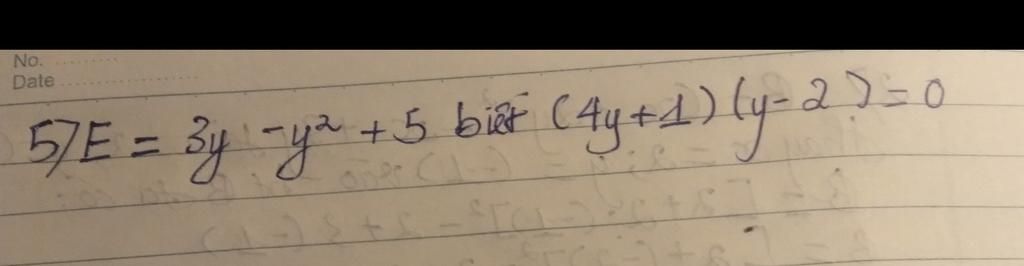 No. ..........
Date ......................
5) E = 3y - y² + 5 biết (4y + 1) (y - 2) = 0